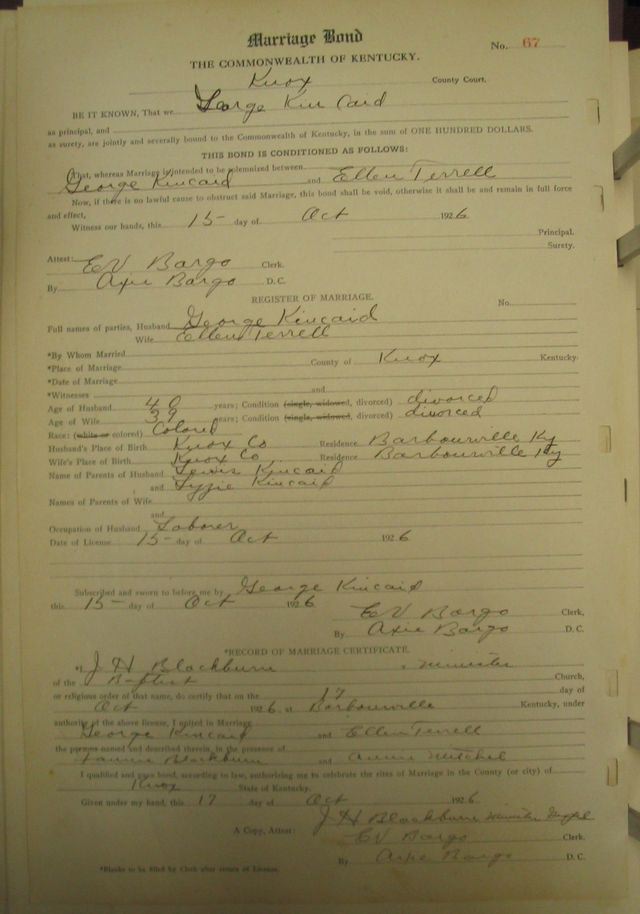 Marriage Bond
No. 67
THE COMMONWEALTH OF KENTUCKY.
Knox County Court.
BE IT KNOWN, That we George Kin Caid
as principal, and
as surety, are jointly and severally bound to the Commonwealth of Kentucky, in the sum of ONE HUNDRED DOLLARS.
THIS BOND IS CONDITIONED AS FOLLOWS:
That, whereas Marriage is intended to be solemnized between
George Kincaid and Ellen Terrell
Now, if there is no lawful cause to obstruct said Marriage, this bond shall be void, otherwise it shall be and remain in full force
and effect,
Witness our hands, this 15 day of Oct 1926
Principal.
Surety.
Attest: EV Bargo Clerk.
By Axie Bargo D.C.
REGISTER OF MARRIAGE.
No.
Full names of parties, Husband George Kincaid
Wife Ellen Terrell
*By Whom Married
*Place of Marriage County of Knox Kentucky.
*Date of Marriage
*Witnesses and
Age of Husband 40 years; Condition (single, widowed, divorced) divorced
Age of Wife 39 years; Condition (single, widowed, divorced) divorced
Race: (white or colored) Colored
Husband's Place of Birth Knox Co Residence Barbourville Ky
Wife's Place of Birth Knox Co Residence Barbourville Ky
Name of Parents of Husband Lewis Kincaid
and Lyzzie Kincaid
Names of Parents of Wife
and
Occupation of Husband Laborer
Date of License 15 day of Oct 1926
Subscribed and sworn to before me by George Kincaid
this 15 day of Oct 1926
EV Bargo Clerk,
By Axie Bargo D.C.
*RECORD OF MARRIAGE CERTIFICATE.
*I J H Blackburn a Minister
of the Baptist Church,
or religious order of that name, do certify that on the 17 day of
Oct 1926 at Barbourville Kentucky, under
authority of the above license, I united in Marriage
George Kincaid and Ellen Terrell
the persons named and described therein, in the presence of
Fannie Blackburn and Annie Mitchel
I qualified and gave bond, according to law, authorizing me to celebrate the rites of Marriage in the County (or city) of
Knox State of Kentucky.
Given under my hand, this 17 day of Oct 1926
J H Blackburn Minister
A Copy, Attest: EV Bargo Clerk.
By Axie Bargo D.C.
*Blanks to be filled by Clerk after return of License.